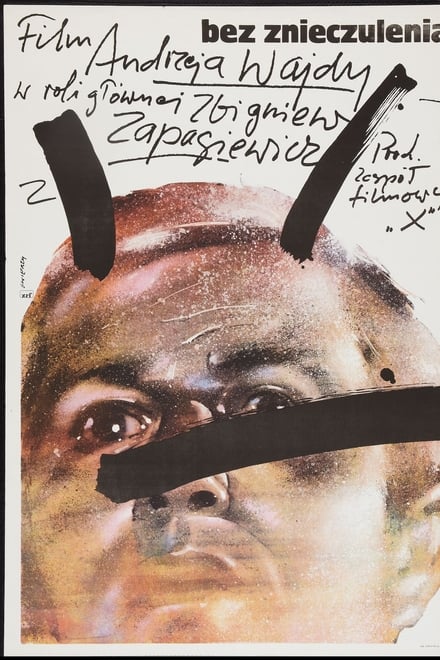 bez znieczulenia
Film Andrzeja Wajdy
w roli głównej Zbigniew
Zapasiewicz
Prod.
Zespół
filmowy
"X"